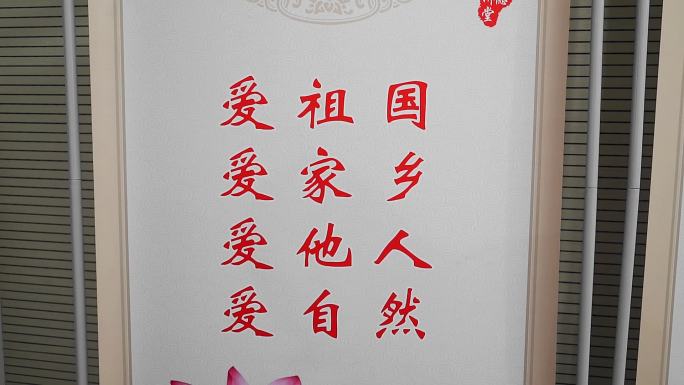 爱祖国
爱家乡
爱他人
爱自然